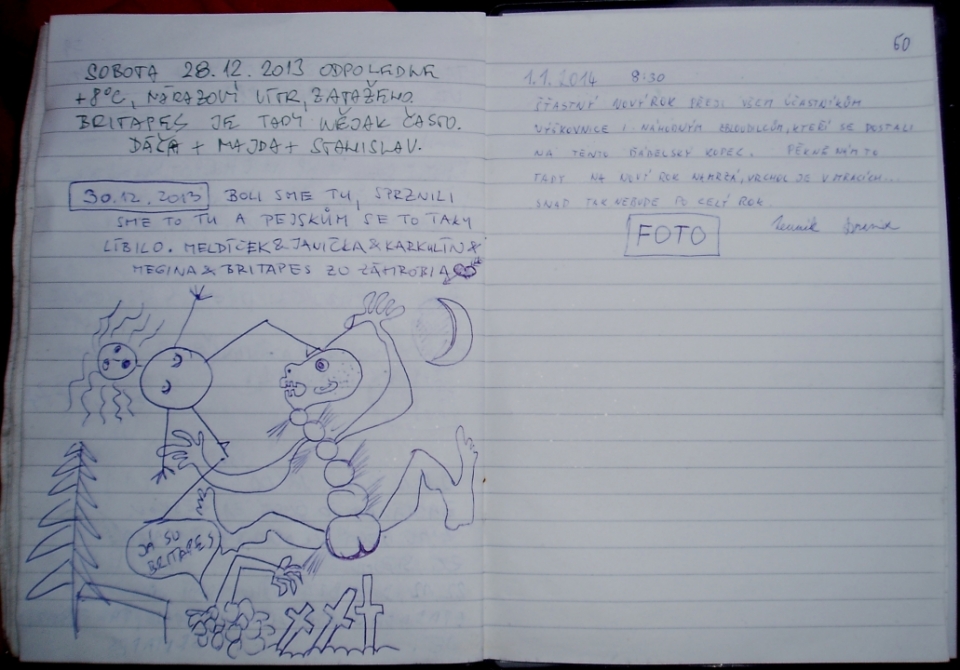 SOBOTA 28.12.2013 ODPOLEDNE
+8°C, NÁRAZOVÝ VÍTR, ZATAŽENO.
BRITAPES JE TADY NĚJAK ČASTO.
DÁČA + MAJDA + STANISLAV.
30.12.2013 BOLI SME TU, SPRZNILI
SME TO TU A PEJSKŮM SE TO TAKY
LÍBILO. MELDÍČEK & JANIČKA & KARKULÍN &
MEGINA & BRITAPES ZO ZÁHROBIA
JÁ SU
BRITAPES
60
1.1.2014 8:30
ŠŤASTNÝ NOVÝ ROK PŘEJI VŠEM ÚČASTNÍKŮM
VÝŠKOVNICE I NÁHODNÝM ZBLOUDILCŮM, KTEŘÍ SE DOSTALI
NA TENTO ĎÁBELSKÝ KOPEC. PĚKNĚ NÁM TO
TADY NA NOVÝ ROK NAMRZÁ, VRCHOL JE V MRACÍCH...
SNAD TAK NEBUDE PO CELÝ ROK.
FOTO